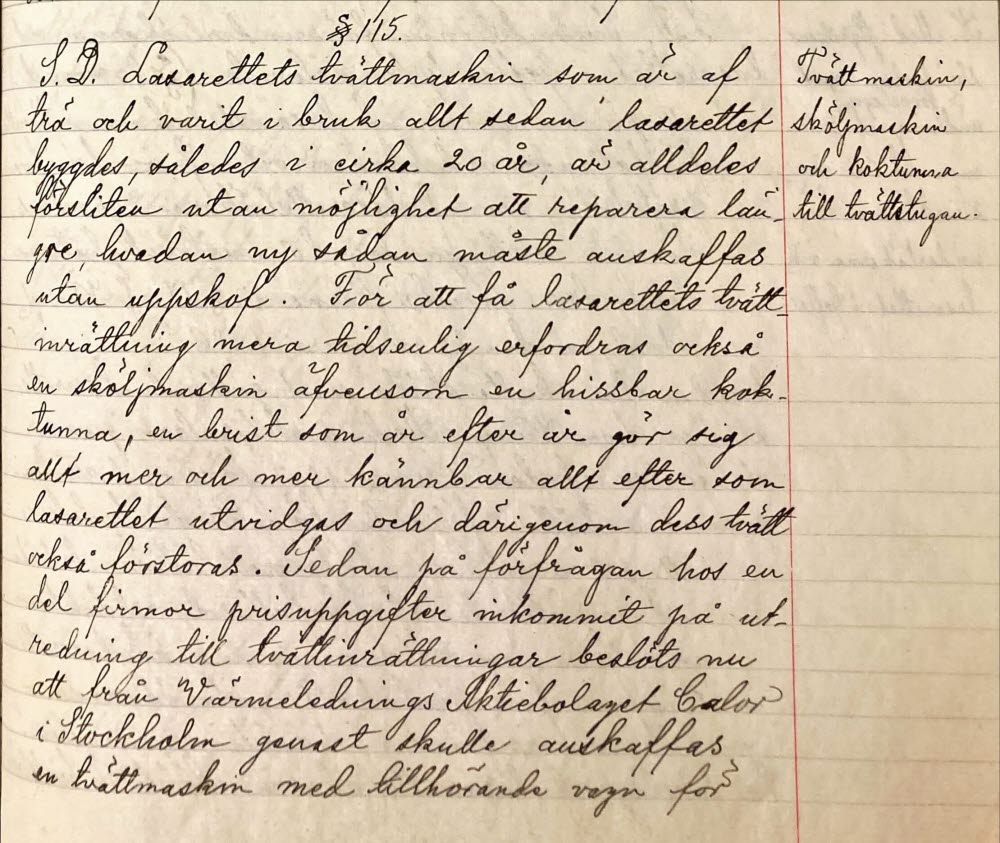 § 115.
S. D. Lasarettets tvättmaskin som är af
trä och varit i bruk allt sedan lasarettet
byggdes, således i cirka 20 år, är alldeles
försliten utan möjlighet att reparera län-
gre, hvadan ny sådan måste anskaffas
utan uppskof. För att få lasarettets tvätt-
inrättning mera tidsenlig erfordras också
en sköljmaskin äfvensom en hissbar kok-
tunna, en brist som år efter år gör sig
allt mer och mer kännbar allt efter som
lasarettet utvidgas och därigenom dess tvätt
också förstoras. Sedan på förfrågan hos en
del firmor prisuppgifter inkommit på ut-
redning till tvättinrättningar beslöts nu
att från Värmelednings Aktiebolaget Calor
i Stockholm genast skulle anskaffas
en tvättmaskin med tillhörande vagn för
Tvättmaskin,
sköljmaskin
och koktunna
till tvättstugan.